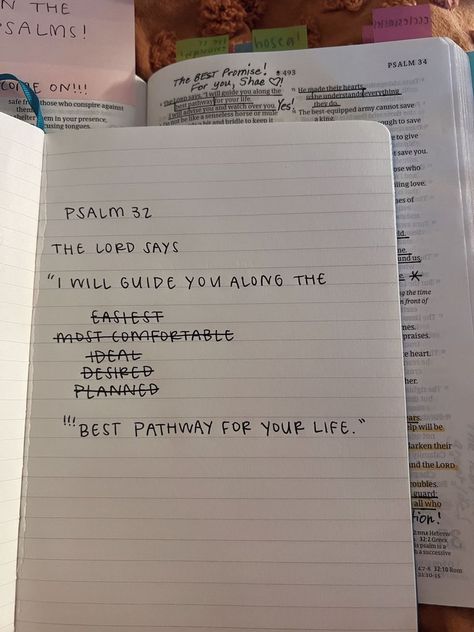 N THE
PSALMS!
OME ON!!!
safe from those who conspire against
them.
shelter them in your presence,
cusing tongues.
hosea!
ECCLESIASTES
PSALM 34
The BEST Promise!
For you, Shae ♡!
493
The LORD says, "I will guide you along the
best pathway for your life.
I will advise you and watch over you.
Yes!
Do not be like a senseless horse or mule
a bit and bridle to keep it
He made their hearts,
so he understands everything
they do.
The best-equipped army cannot save
a king,
ough to save
to give
ot save you.
ose who
iling love.
PSALM 32
THE LORD SAYS
"I WILL GUIDE YOU ALONG THE
EASIEST
MOST COMFORTABLE
IDEAL
DESIRED
PLANNED
!!! BEST PATHWAY FOR YOUR LIFE."
und us,
*
ng the time
n front of
mes.
praises.
e heart.
her.
ears.
elp will be
darken their
and the LORD
oubles.
guard;
all who
tion!
32:2 Greek
is psalm is a
h a successive
4:7-8 32:10 Rom